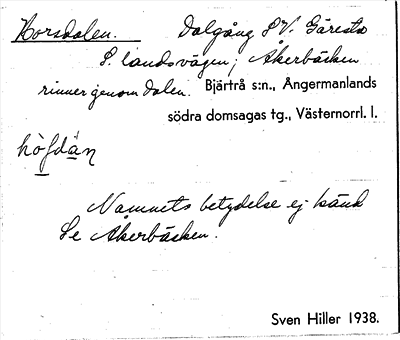 Horsdalen. Dalgång S.V. Gåresta
S. landsvägen; Åkerbäcken
rinner genom dalen. Bjärtrå s:n., Ångermanlands
södra domsagas tg., Västernorrl. l.
Namnets betydelse ej känd
Se Åkerbäcken.
Sven Hiller 1938.